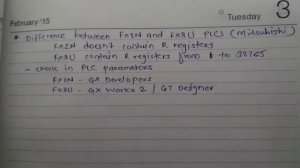 February '15
Tuesday 3
* Difference between FX2N and FX3U PLCS (Mitsubishi)
FX2N doesn't contain R registers
FX3U contain R registers from 0 to 32765
- check in PLC parameters
FX2N - GX Developers
FX3U - GX Works 2 / GT Designer